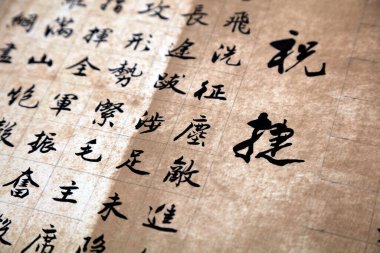 祝捷
飛洗征塵敵進
長途跋涉足未
攻形勢緊毛主席
指揮全軍振奮
滿山炮